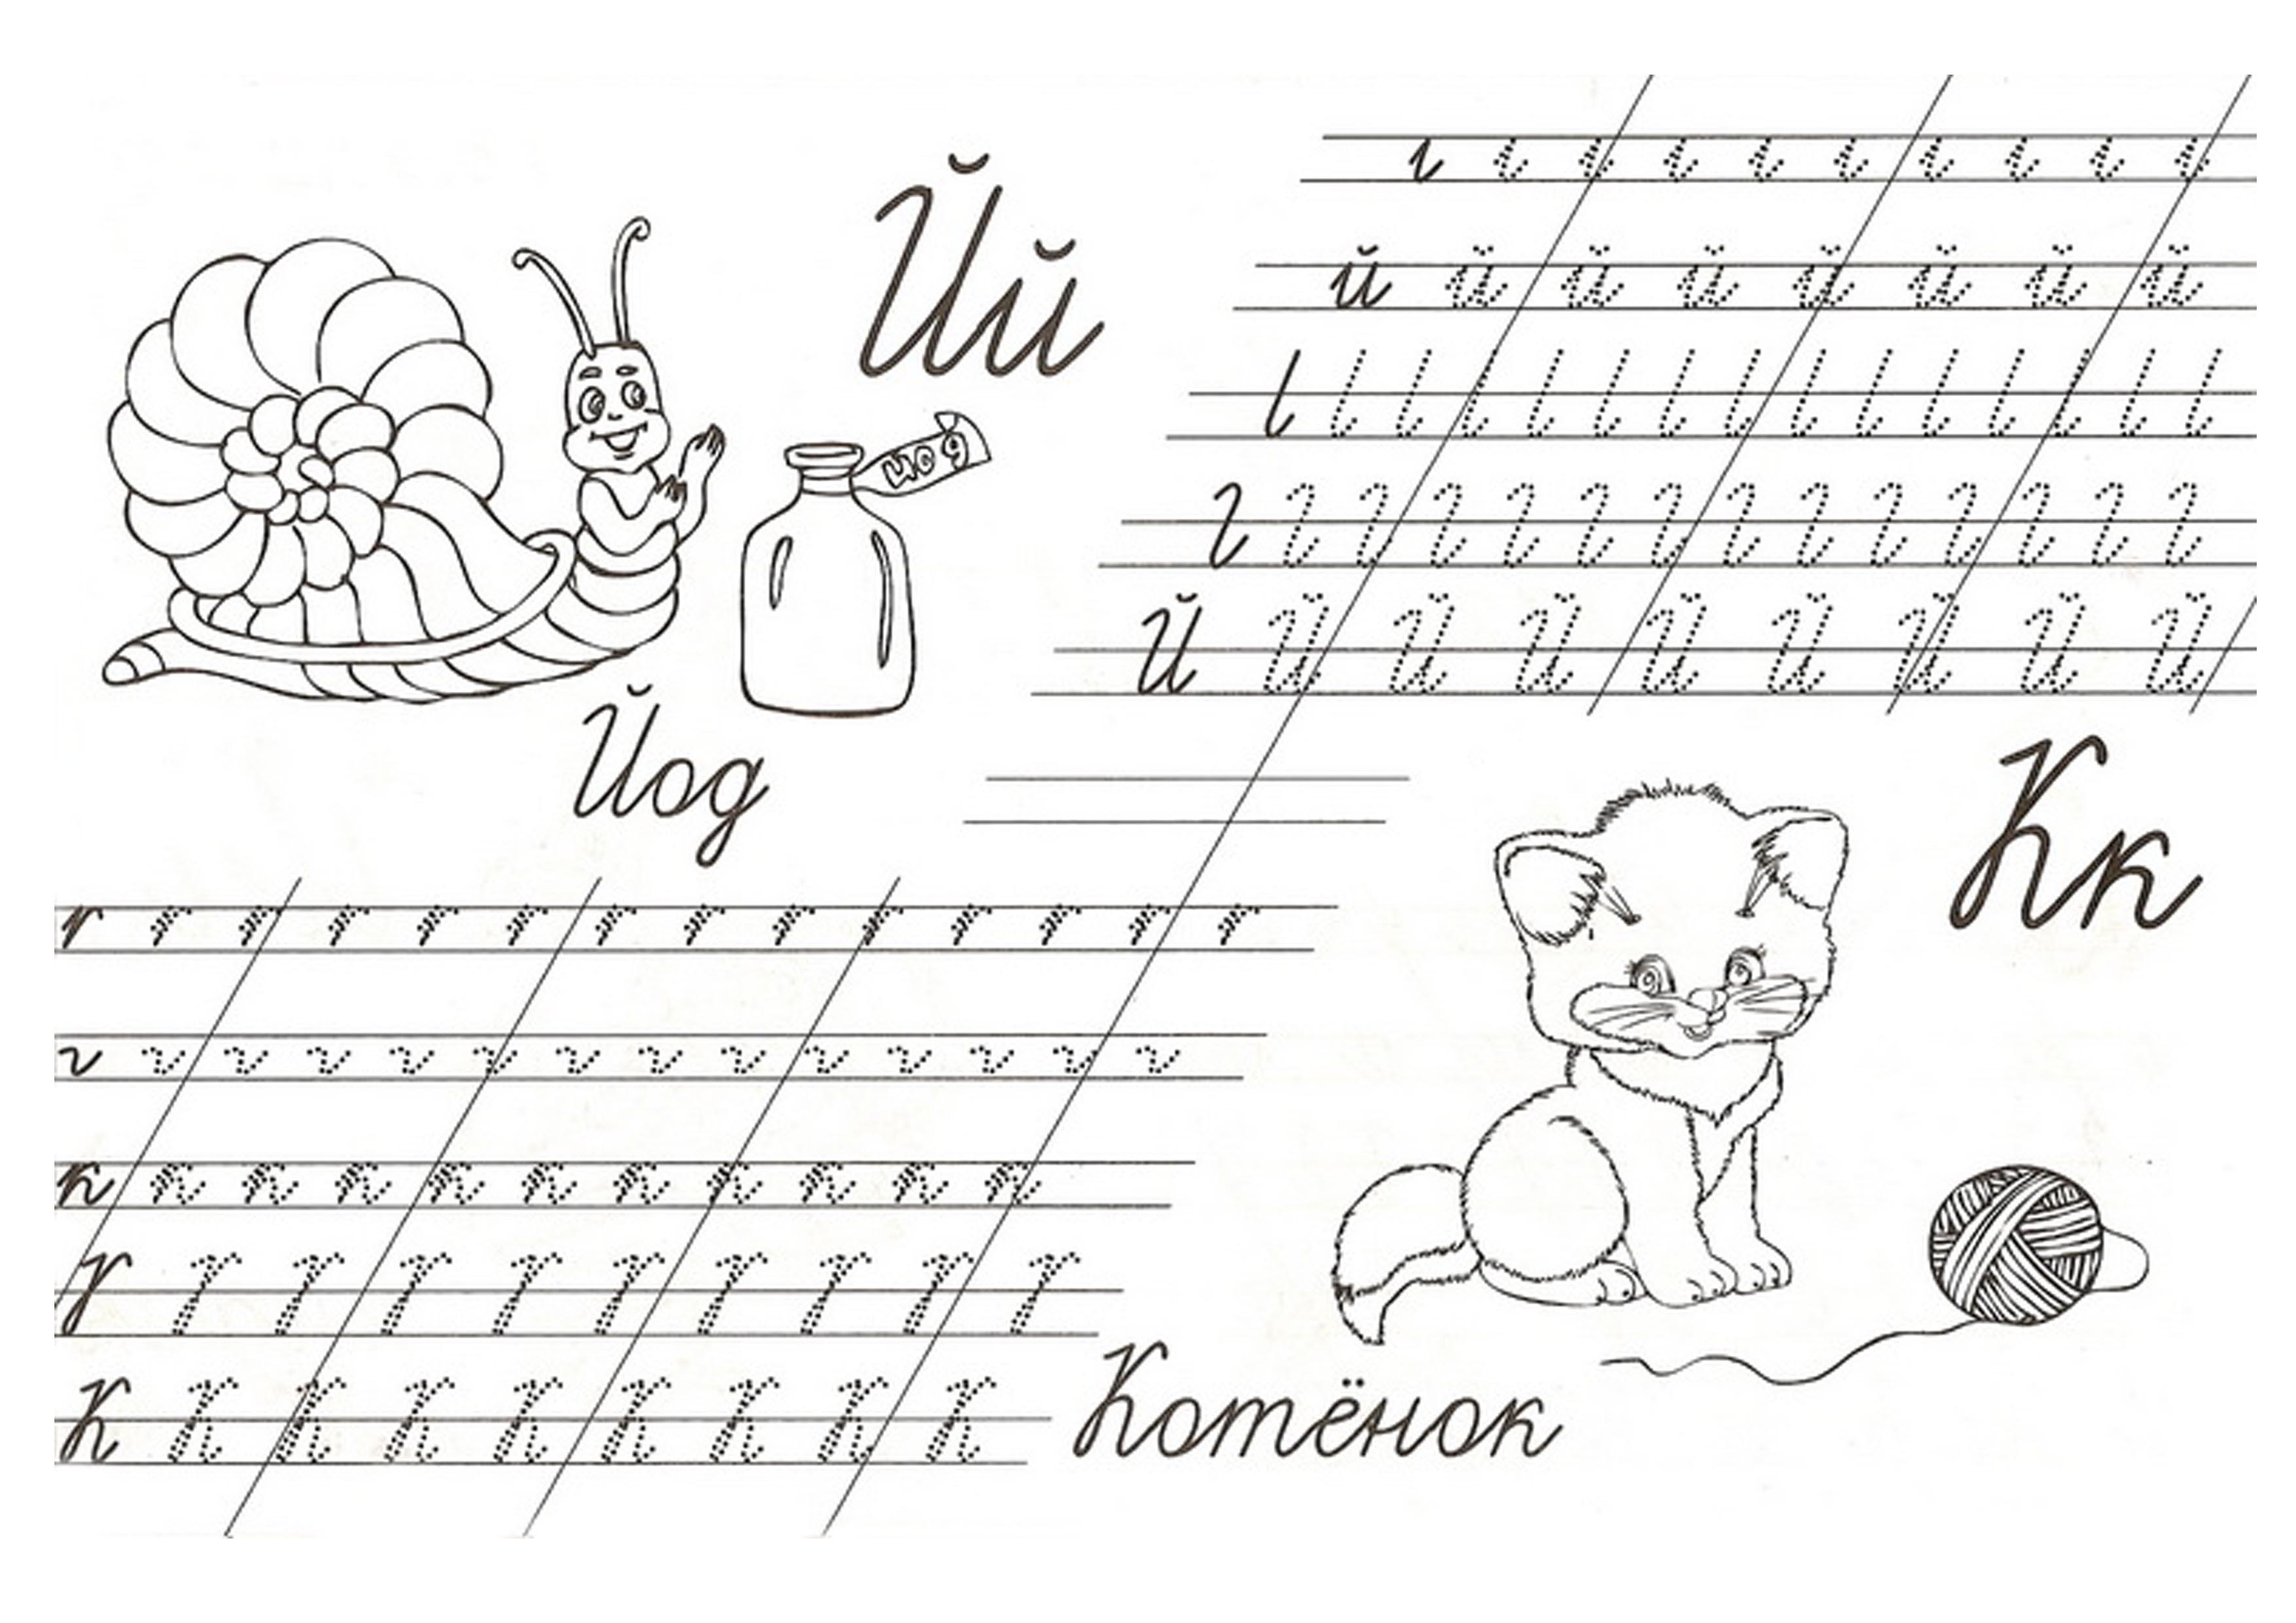 Йй
й й й й й й й й
иод
Й Й Й Й Й Й Й Й Й
Йод
Кк
к к к к к к к к к к к
К К К К К К К К К
Котёнок